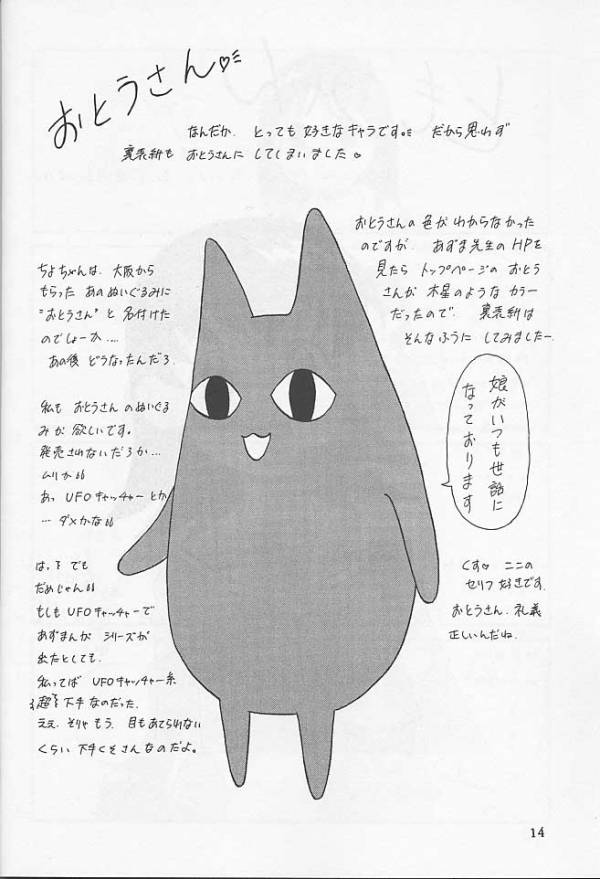 おとうさん♡
なんだか とっても 好きなキャラです。 だから思わず
裏表紙も おとうさんに してしまいました♡
おとうさんの 色が わからなかった
のですが あずま先生の HPを
見たら トップページの おとう
さんが 木星のような カラー
だったので、 裏表紙は
そんなふうに してみましたー
ちよちゃんは、大阪から
もらった あのぬいぐるみに
"おとうさん" と 名付けた
のでしょーか....
あの後 どうなったんだろ
私も おとうさん のぬいぐる
みが 欲しいです。
発売されないだろか…
ムリか
あっ UFOキャッチャー とか
… ダメかな
娘がいつも世話に
なっております
は、 でも
だめじゃん
もしも UFOキャッチャーで
あずまんが シリーズが
出たとしても、
私ってば UFOキャッチャー系
超 下手 なのだった。
ええ、そりゃ もう 目もあてられない
くらい 下手くそさんなのだよ。
くす♡ ここの
セリフ 好きです。
おとうさん、礼義
正しいんだね。
14